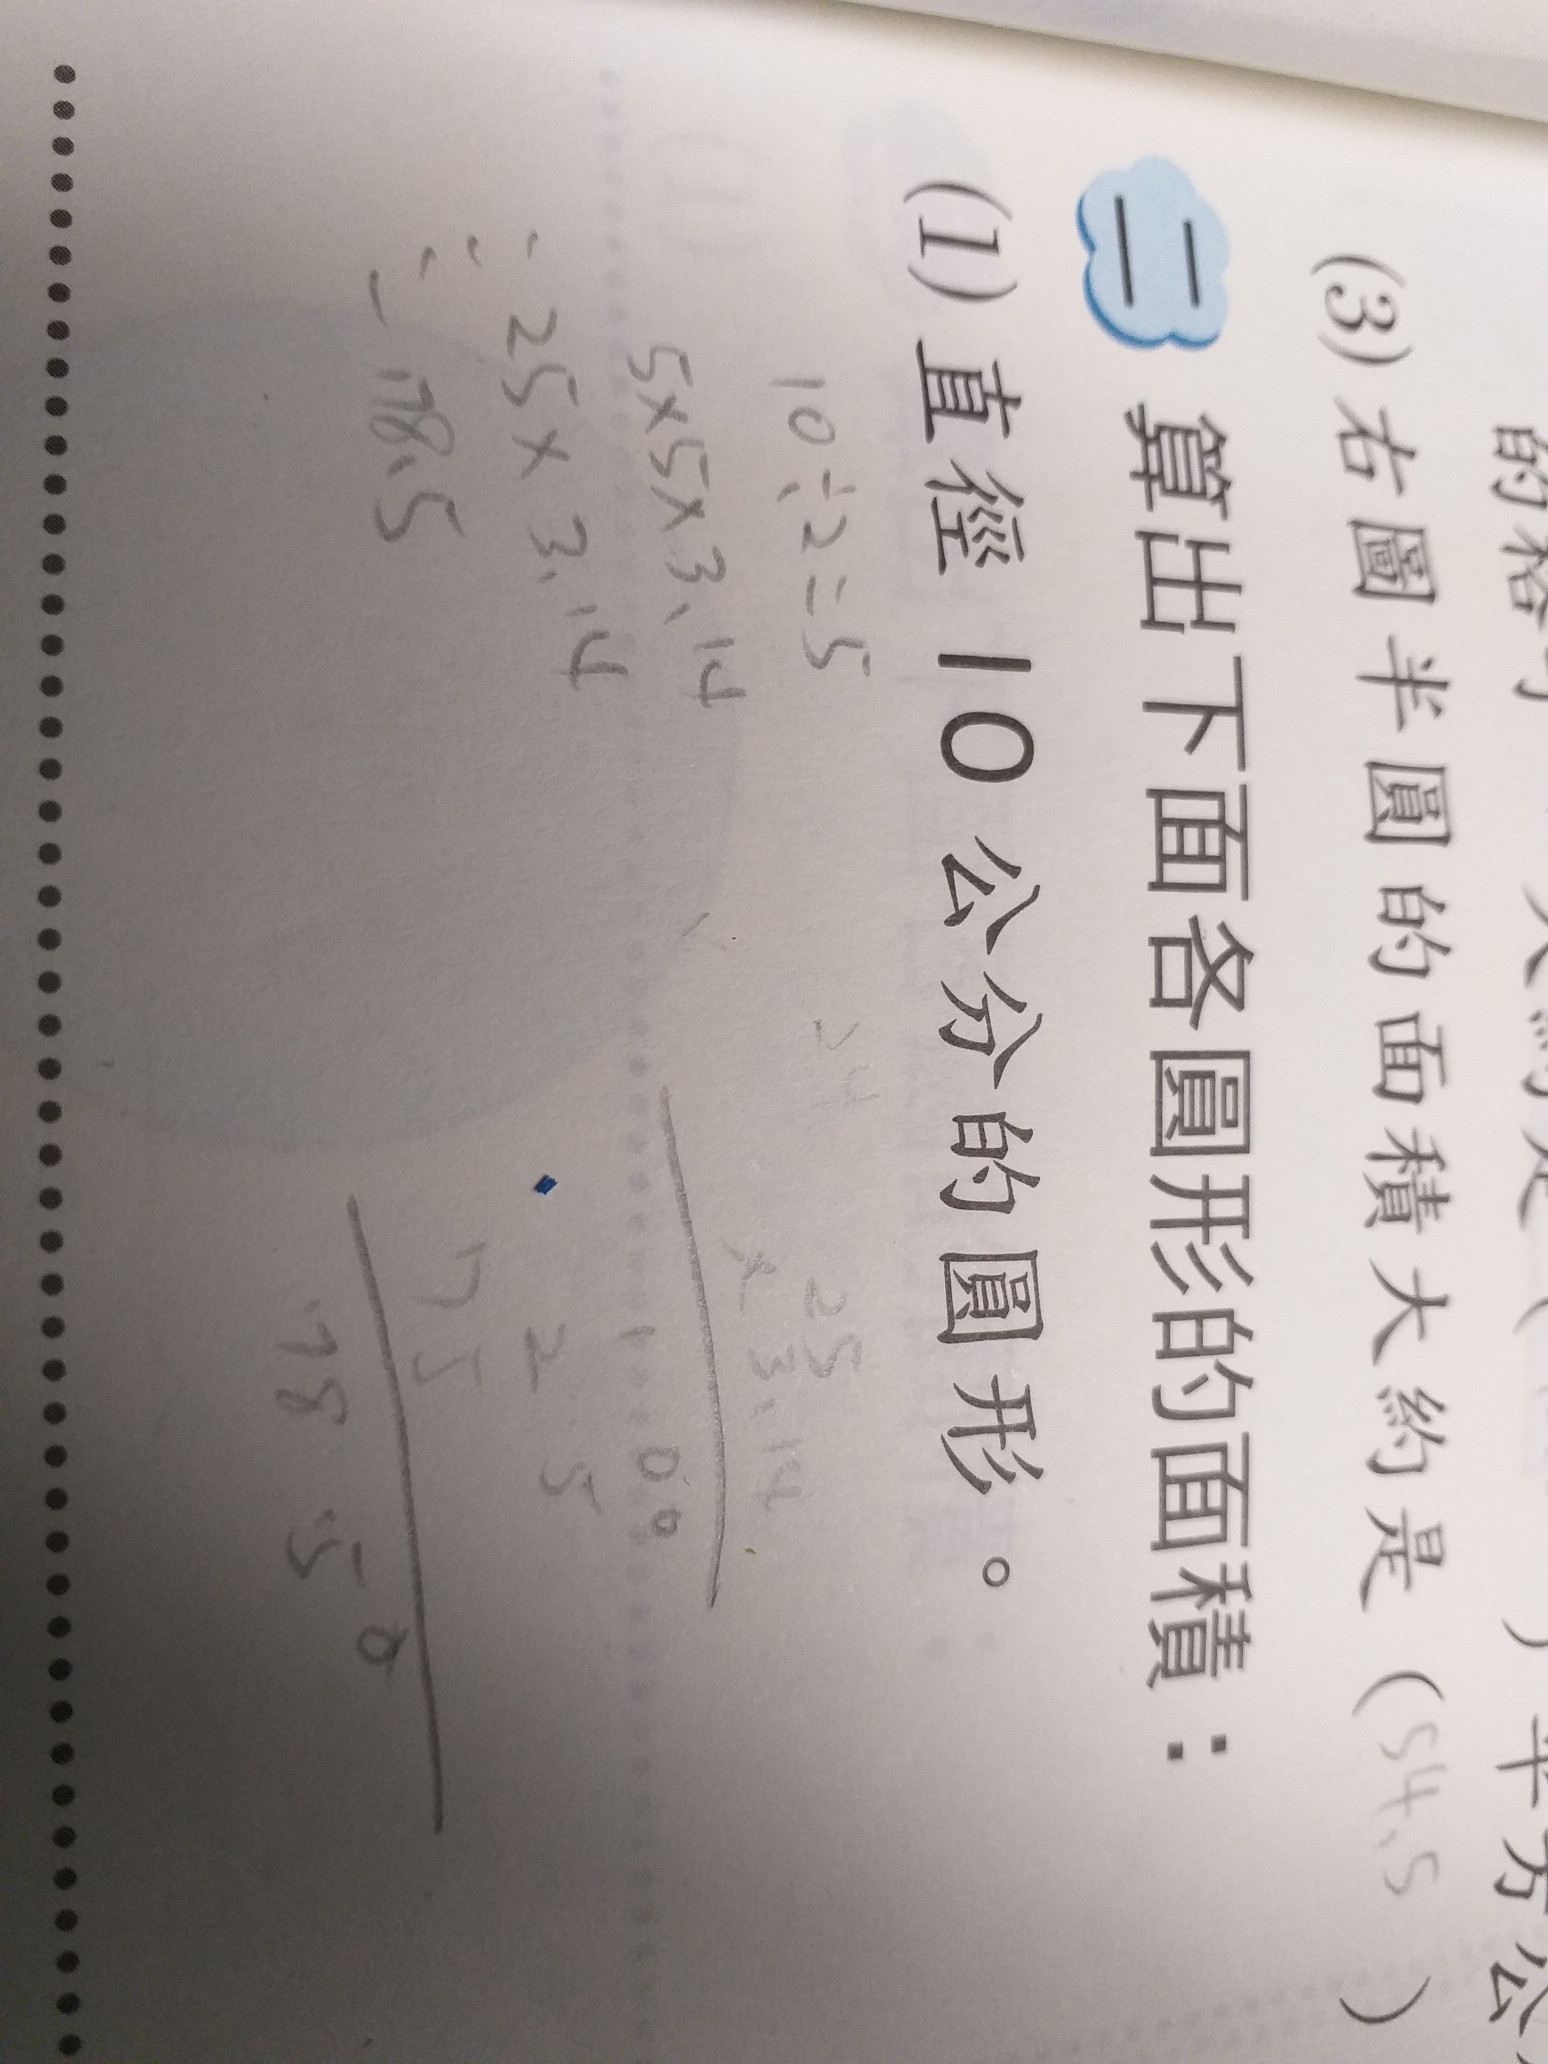 (3) 右圖半圓的面積大約是 ( 54.5 )
二 算出下面各圓形的面積：
(1) 直徑 10 公分的圓形。
10÷2=5
5×5×3.14
=25×3.14
=78.5
25
×3.14
100
25
75
78.50